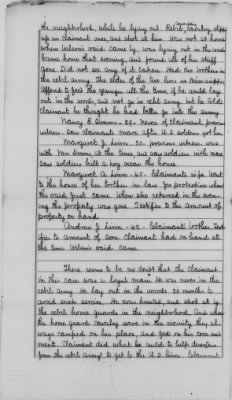 the neighborhood, while he lying out. Rebel cavalry slipped
up on claimant once, and shot at him. Was not at home
when Wilson's raid came by, was lying out in the woods
Came home that evening, and found all of his stuff
gone. Did not see any of it taken. Had two brothers in
the rebel army. The elder of the two live in Mississippi
offered to feed the younger all the time, if he would lay
out in the woods, and not go in rebel army, but he told
claimant he thought he had better go into the army
Nancy E. Simms - 29. niece of claimant, former
witness. Saw claimants mare after U.S. soldiers got her.
Margaret J. Linn. 29. previous witness was
with Mrs Simms at the time, and say soldier with mare
Saw soldiers kill a hog near the house.
Margaret A. Linn - 40. Claimants wife. Went
to the house of her brother in law for protection when
the raid first came. When she returned in the even-
ing the property was gone. Testifies to the amount of
property on hand.
Andrew J. Linn - 42. Claimants brother. Testi-
fies to amount of corn claimant had on hand at
the time Wilson's raid came
There seems to be no doubt that the claimant
in this case was a loyal man. He was never in the
rebel army. He lay out in the woods 20 months to
avoid such service. He was hunted, and shot at by
the rebel home guards in the neighborhood. And when
the home guards cavalry were in the vicinity they al-
ways camped on his place, and fed on his corn and
meat. Claimant did what he could to help deserters
from the rebel army to get to the U.S. lines. Claimant